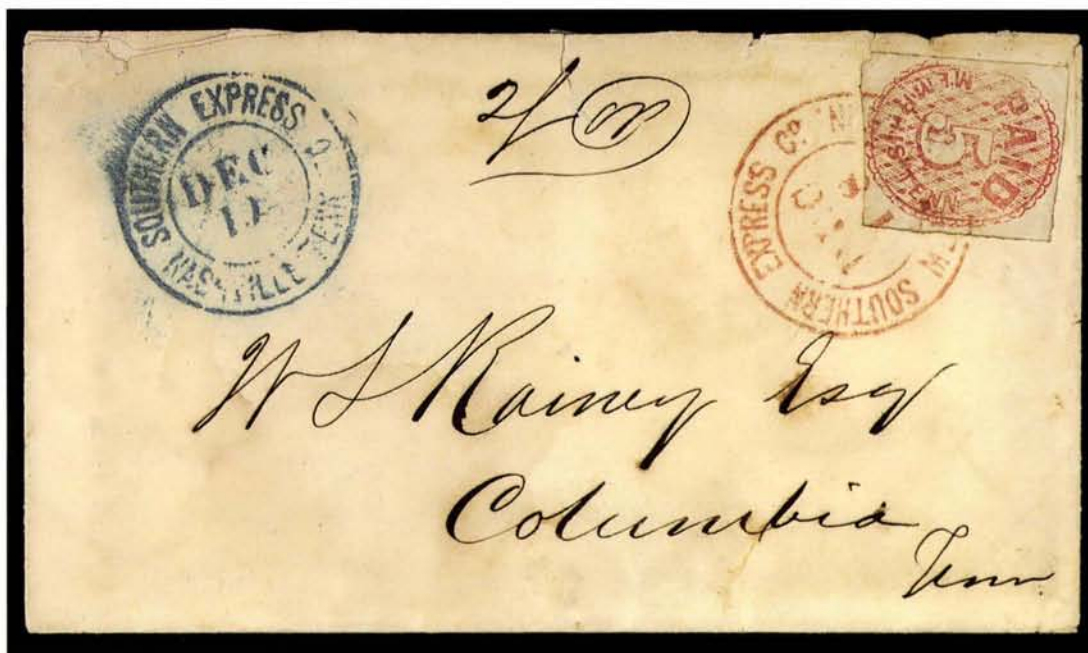 SOUTHERN EXPRESS Cº
DEC
NASHVILLE TENN
SOUTHERN EXPRESS Cº
PAID
5
W S Rainey Esq
Columbia
Tenn